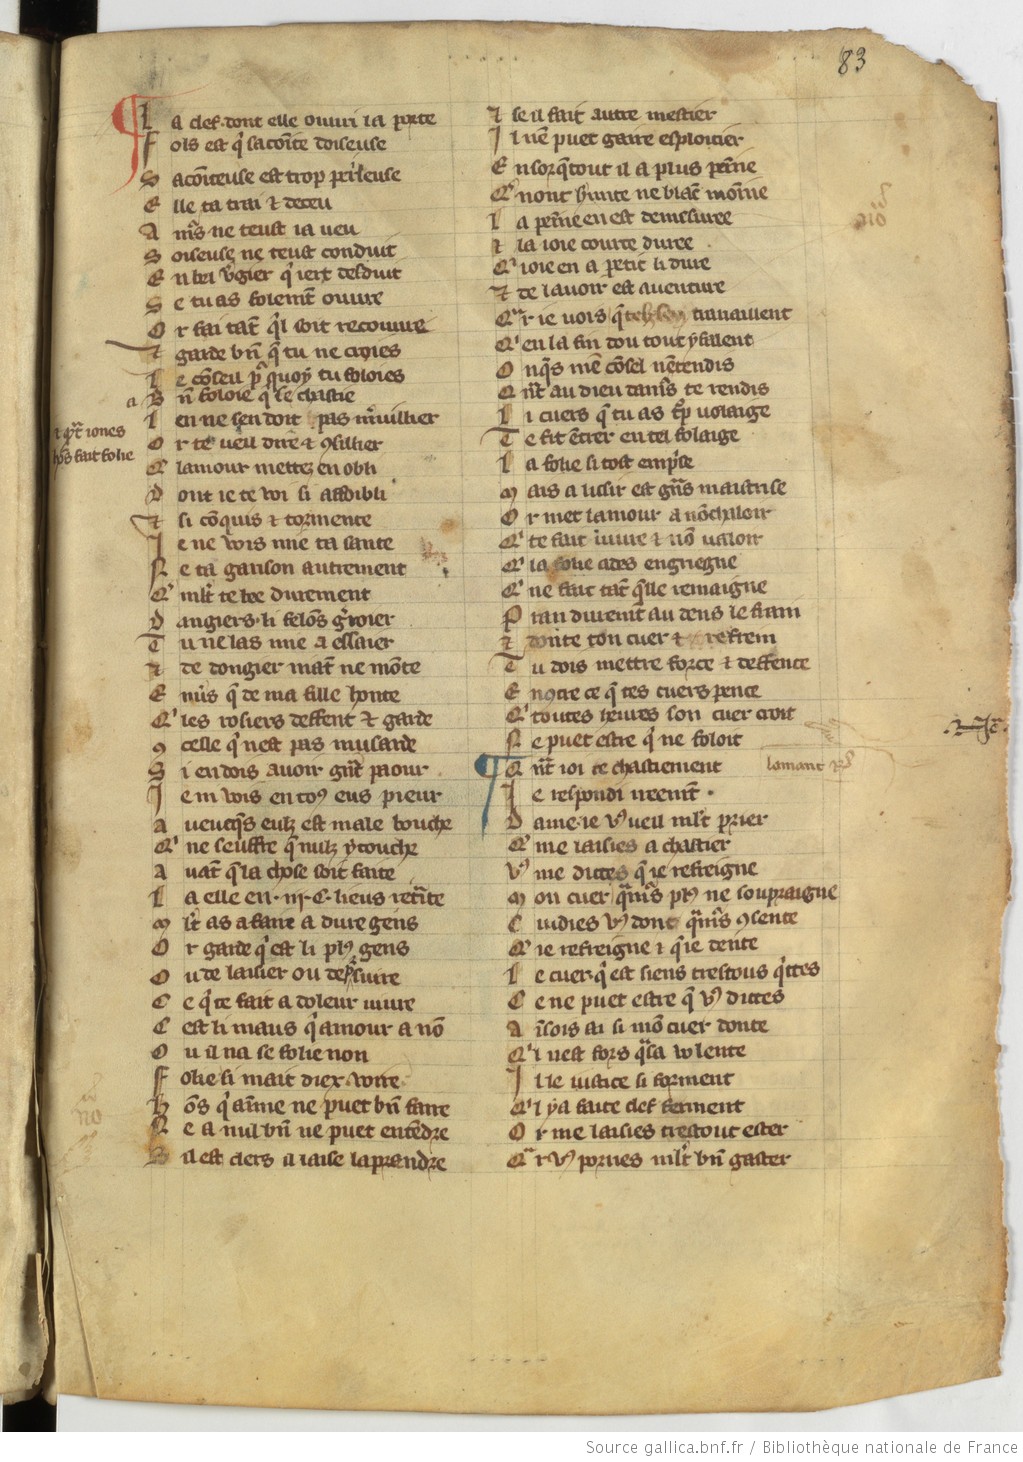 83
L a clef dont elle ouuri la porte
F ols est q̓ sacoĩte doiseuse
S acoĩteuse est trop perilleuse
E lle ta trai ⁊ deceu
A m̃s ne teust ia ueu
S oiseuse ne teust conduit
E n bel u̓gier q̓ iert desduit
S e tu as folemẽt ouure
O r fai tãt q̓l soit recouure
⁊ garde bñ q̃ tu ne croies
L e cõseil p̲ quoy tu foloies
a B ñ foloie q̓ se chastie
⁊ q̃t iones
hõs fait folie
I en ne sen doit pas m̃uillier
O r te ueil dire ⁊ ꝯsillier
Q̓ lamour mettez en obli
D ont ie te voi si affoibli
⁊ si cõquis ⁊ tormente
I e ne vois mie ta sante
N e ta garison autrement
Q̓ mlt̃ te bee durement
D angiers li felõs g̃uoier
T u ne las mie a essaier
⁊ de dongier mat̃ ne mõte
E nũs q̃ de ma fille honte
Q̓ les rosiers deffent ⁊ garde
ꝯ celle q̓ nest pas musarde
S i en dois auoir gñt paour
I e ni vois en toꝰ eus pieur
A ueuq̃s eulz est male bouche
Q̓ ne seuffre q̃ nulz y touche
A uãt q̃ la chose soit faite
L a elle en .iii. C. lieus ret̃ite
M lt̃ as a faire a dure gens
O r garde q̓ est li plꝰ gens
O u de laisier ou de p̲suire
C e q̓ te fait a doleur uiure
C est li maus q̓ amour a nõ
O u il na se folie non
F olie si mait diex voire
H õs q̓ aĩme ne puet bñ faire
N e a nul bñ ne puet entẽdre
S il est clers il laise laprendre
⁊ se il fait autre mestier
I l nẽ puet gaire esploitier
E nsorq̃tout il a plus peĩne
Q̓ nont hmite ne blãc moĩne
L a peĩne en est demesuree
⁊ la ioie courte duree
Q̓ ioie en a petit li dure
⁊ de lauoir est auenture
Q̃r ie uois q̃ tebz sen trauaillent
Q̓ en la fin dou tout y faillent
O nq̃s mẽ cõsel nẽtendis
Q ñt au dieu dam̃s te rendis
L i cuers q̃ tu as tp̃ uolaige
T e fit ẽtrer en tel folaige
L a folie si tost emp̃se
M ais a lissir est gñs maistrise
O r met lamour a nõchaloir
Q̓ te fait uiure ⁊ nõ ualoir
Q̓ la folie ades engregne
Q̓ ne fait tãt q̃lle remaigne
P ran durem̃t au dens le frain
⁊ donte ton cuer ⁊ refrein
T u dois mettre force ⁊ deffence
E ncõtre ce q̃ tes cuers pence
Q̓ toutes heures son cuer croit
N e puet estre q̓ ne foloit
Q ñt ioi ce chastiement
lamant
I e respondi ireemẽt .
D ame ie uꝰ ueil mlt̃ prier
Q̓ me laisies a chastier
Vꝰ me dictes q̃ ie refreigne
M on cuer q̃m̃s plꝰ ne sourpraigne
C uidies uꝰ dont q̃m̃s ꝯsente
Q̓ ie refreigne ⁊ q̓ ie dente
L e cuer q̓ est siens trestous q̓ttes
C e ne puet estre q̃ uꝰ dictes
A ĩsois ai si mõ cuer donte
Q̓ l nest fors q̃ sa volente
I l le iustice si forment
Q̓ l y a faite clef ferment
O r me laisies trestout ester
Q̃r uꝰ porries mlt̃ bñ gaster
Source gallica.bnf.fr / Bibliothèque nationale de France